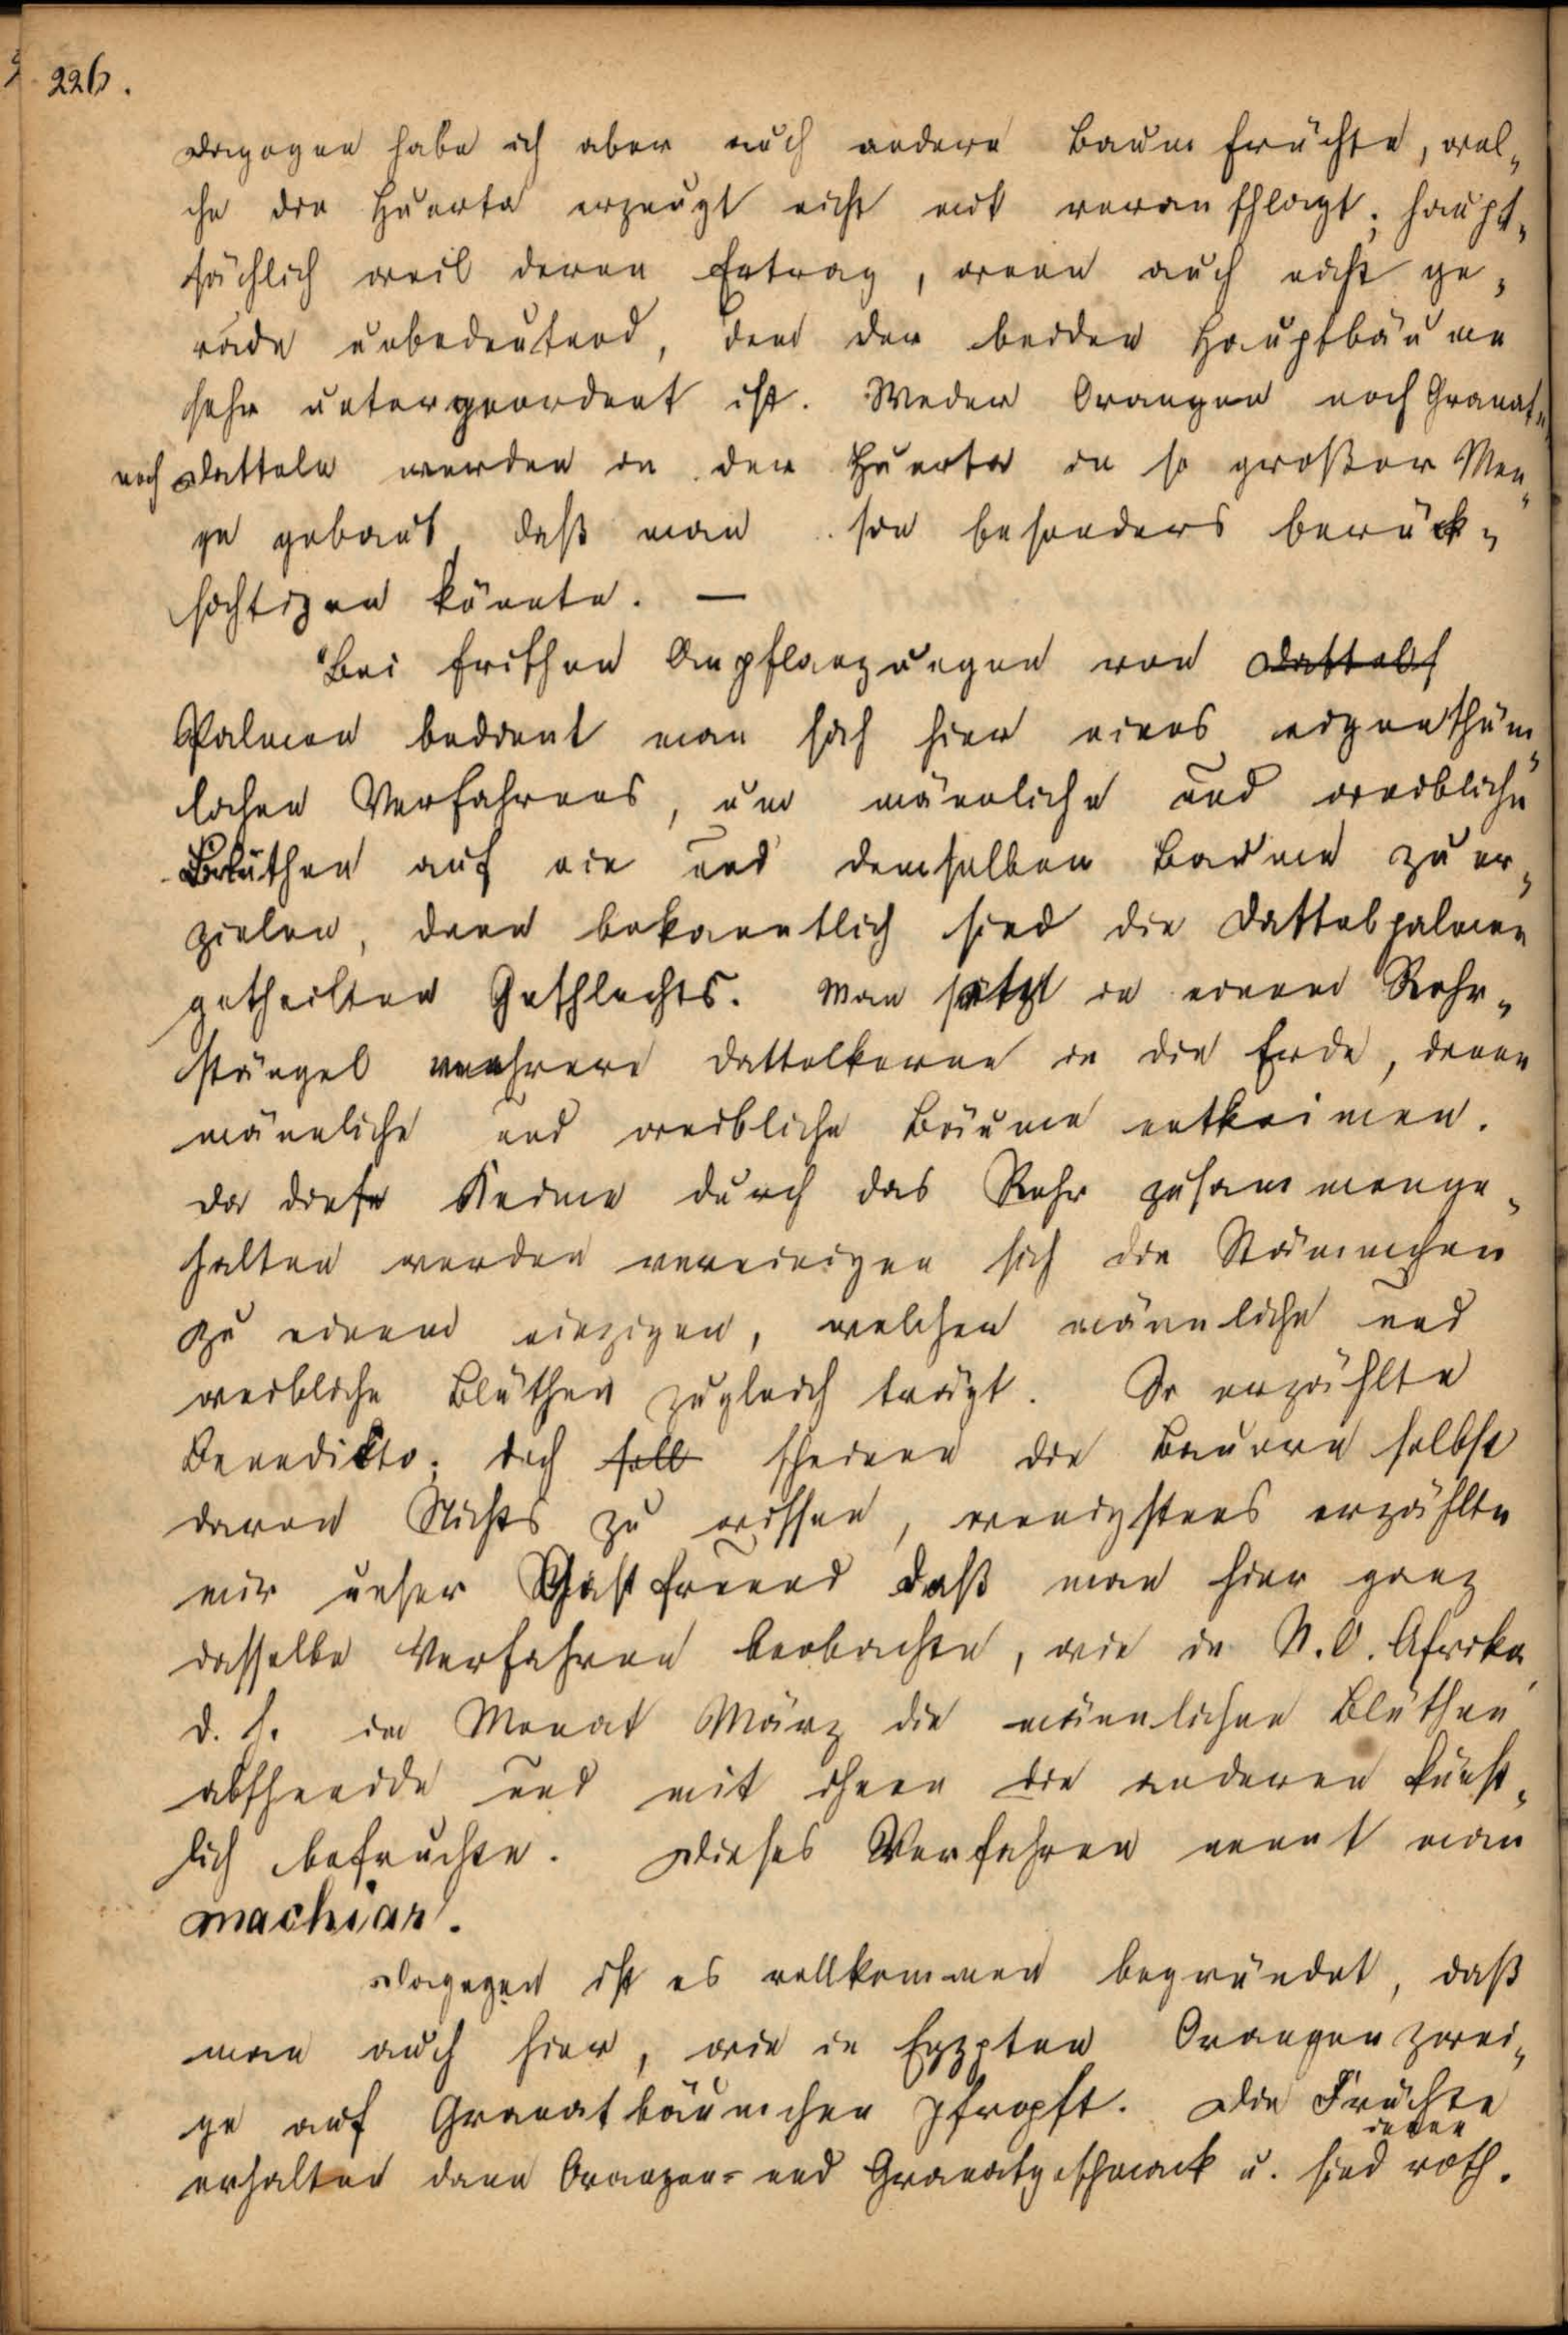 226.
Dagegen habe ich aber auch andere Baumfrüchte, wel-
che die Huerta erzeugt nicht mit veranschlagt; haupt-
sächlich weil deren Ertrag, wenn auch nicht ge-
rade unbedeutend, dem der beiden Hauptbäume
sehr untergeordnet ist. Weder Orangen noch Granat-
noch Datteln werden in der Huerta in so großer Men-
ge gebaut, daß man sie besonders berück-
sichtigen könnte. —
Bei frischen Anpflanzungen von Dattel
Palmen bedient man sich hier eines eigenthüm-
lichen Verfahrens, um männliche und weibliche
Blüthen auf ein und demselben Baume zu er-
zielen, denn bekanntlich sind die Dattelpalmen
getheilten Geschlechts. Man setzt in einem Rohr-
stängel mehrere Dattelkerne in die Erde, denen
männliche und weibliche Bäume entkeimen.
Da diese Keime durch das Rohr zusammenge-
halten werden vereinigen sich die Stämmchen
zu einem einzigen, welchen männliche und
weibliche Blüthen zugleich trägt. So erzählte
Benedikto; doch soll scheinen die Bauern selbst
davon Nichts zu wissen, wenigstens erzählte
mir unser Gastfreund daß man hier ganz
dasselbe Verfahren beobachte, wie in N.O. Afrika,
d. h. im Monat März die männlichen Blüthen
abschneide und mit ihnen die anderen künst-
lich befruchte. Dieses Verfahren nennt man
machiar.
Dagegen ist es vollkommen begründet, daß
man auch hier, wie in Egypten Orangenzwei-
ge auf Granatbäumchen pfropft. Die Früchte
erhalten dann Orangen- und Granatgeschmack u. sind innen roth.